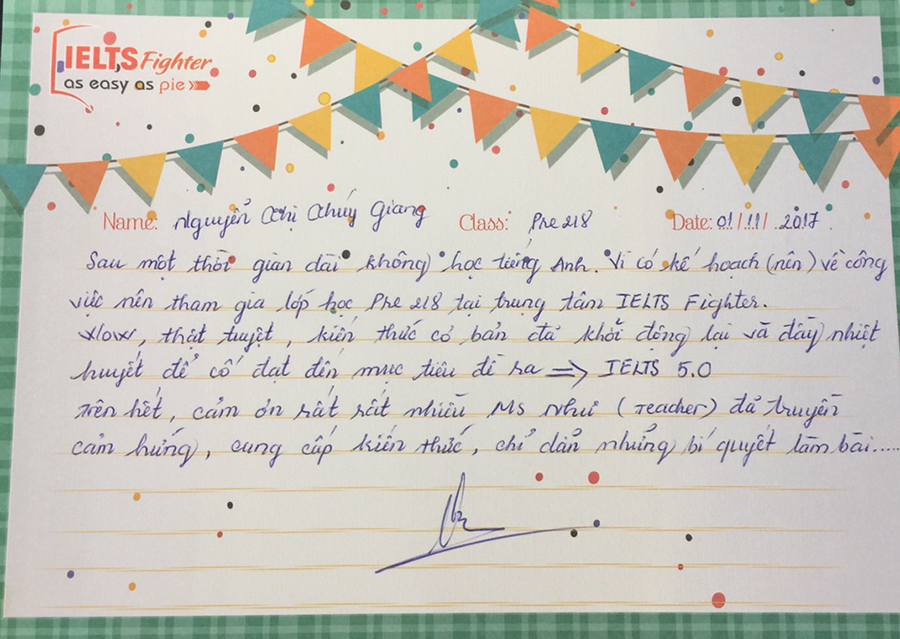 IELTS Fighter
as easy as pie
Name: Nguyễn Thị Thúy Giang Class: Pre 218 Date: 01/11/2017.
Sau một thời gian dài không học tiếng Anh. Vì có kế hoạch (nên) về công
việc nên tham gia lớp học Pre 218 tại trung tâm IELTS Fighter.
Wow, thật tuyệt, kiến thức cơ bản đã khởi động lại và đầy nhiệt
huyết để cố đạt đến mục tiêu đề ra => IELTS 5.0
Trên hết, cảm ơn rất rất nhiều Ms Như (Teacher) đã truyền
cảm hứng, cung cấp kiến thức, chỉ dẫn những bí quyết làm bài.....